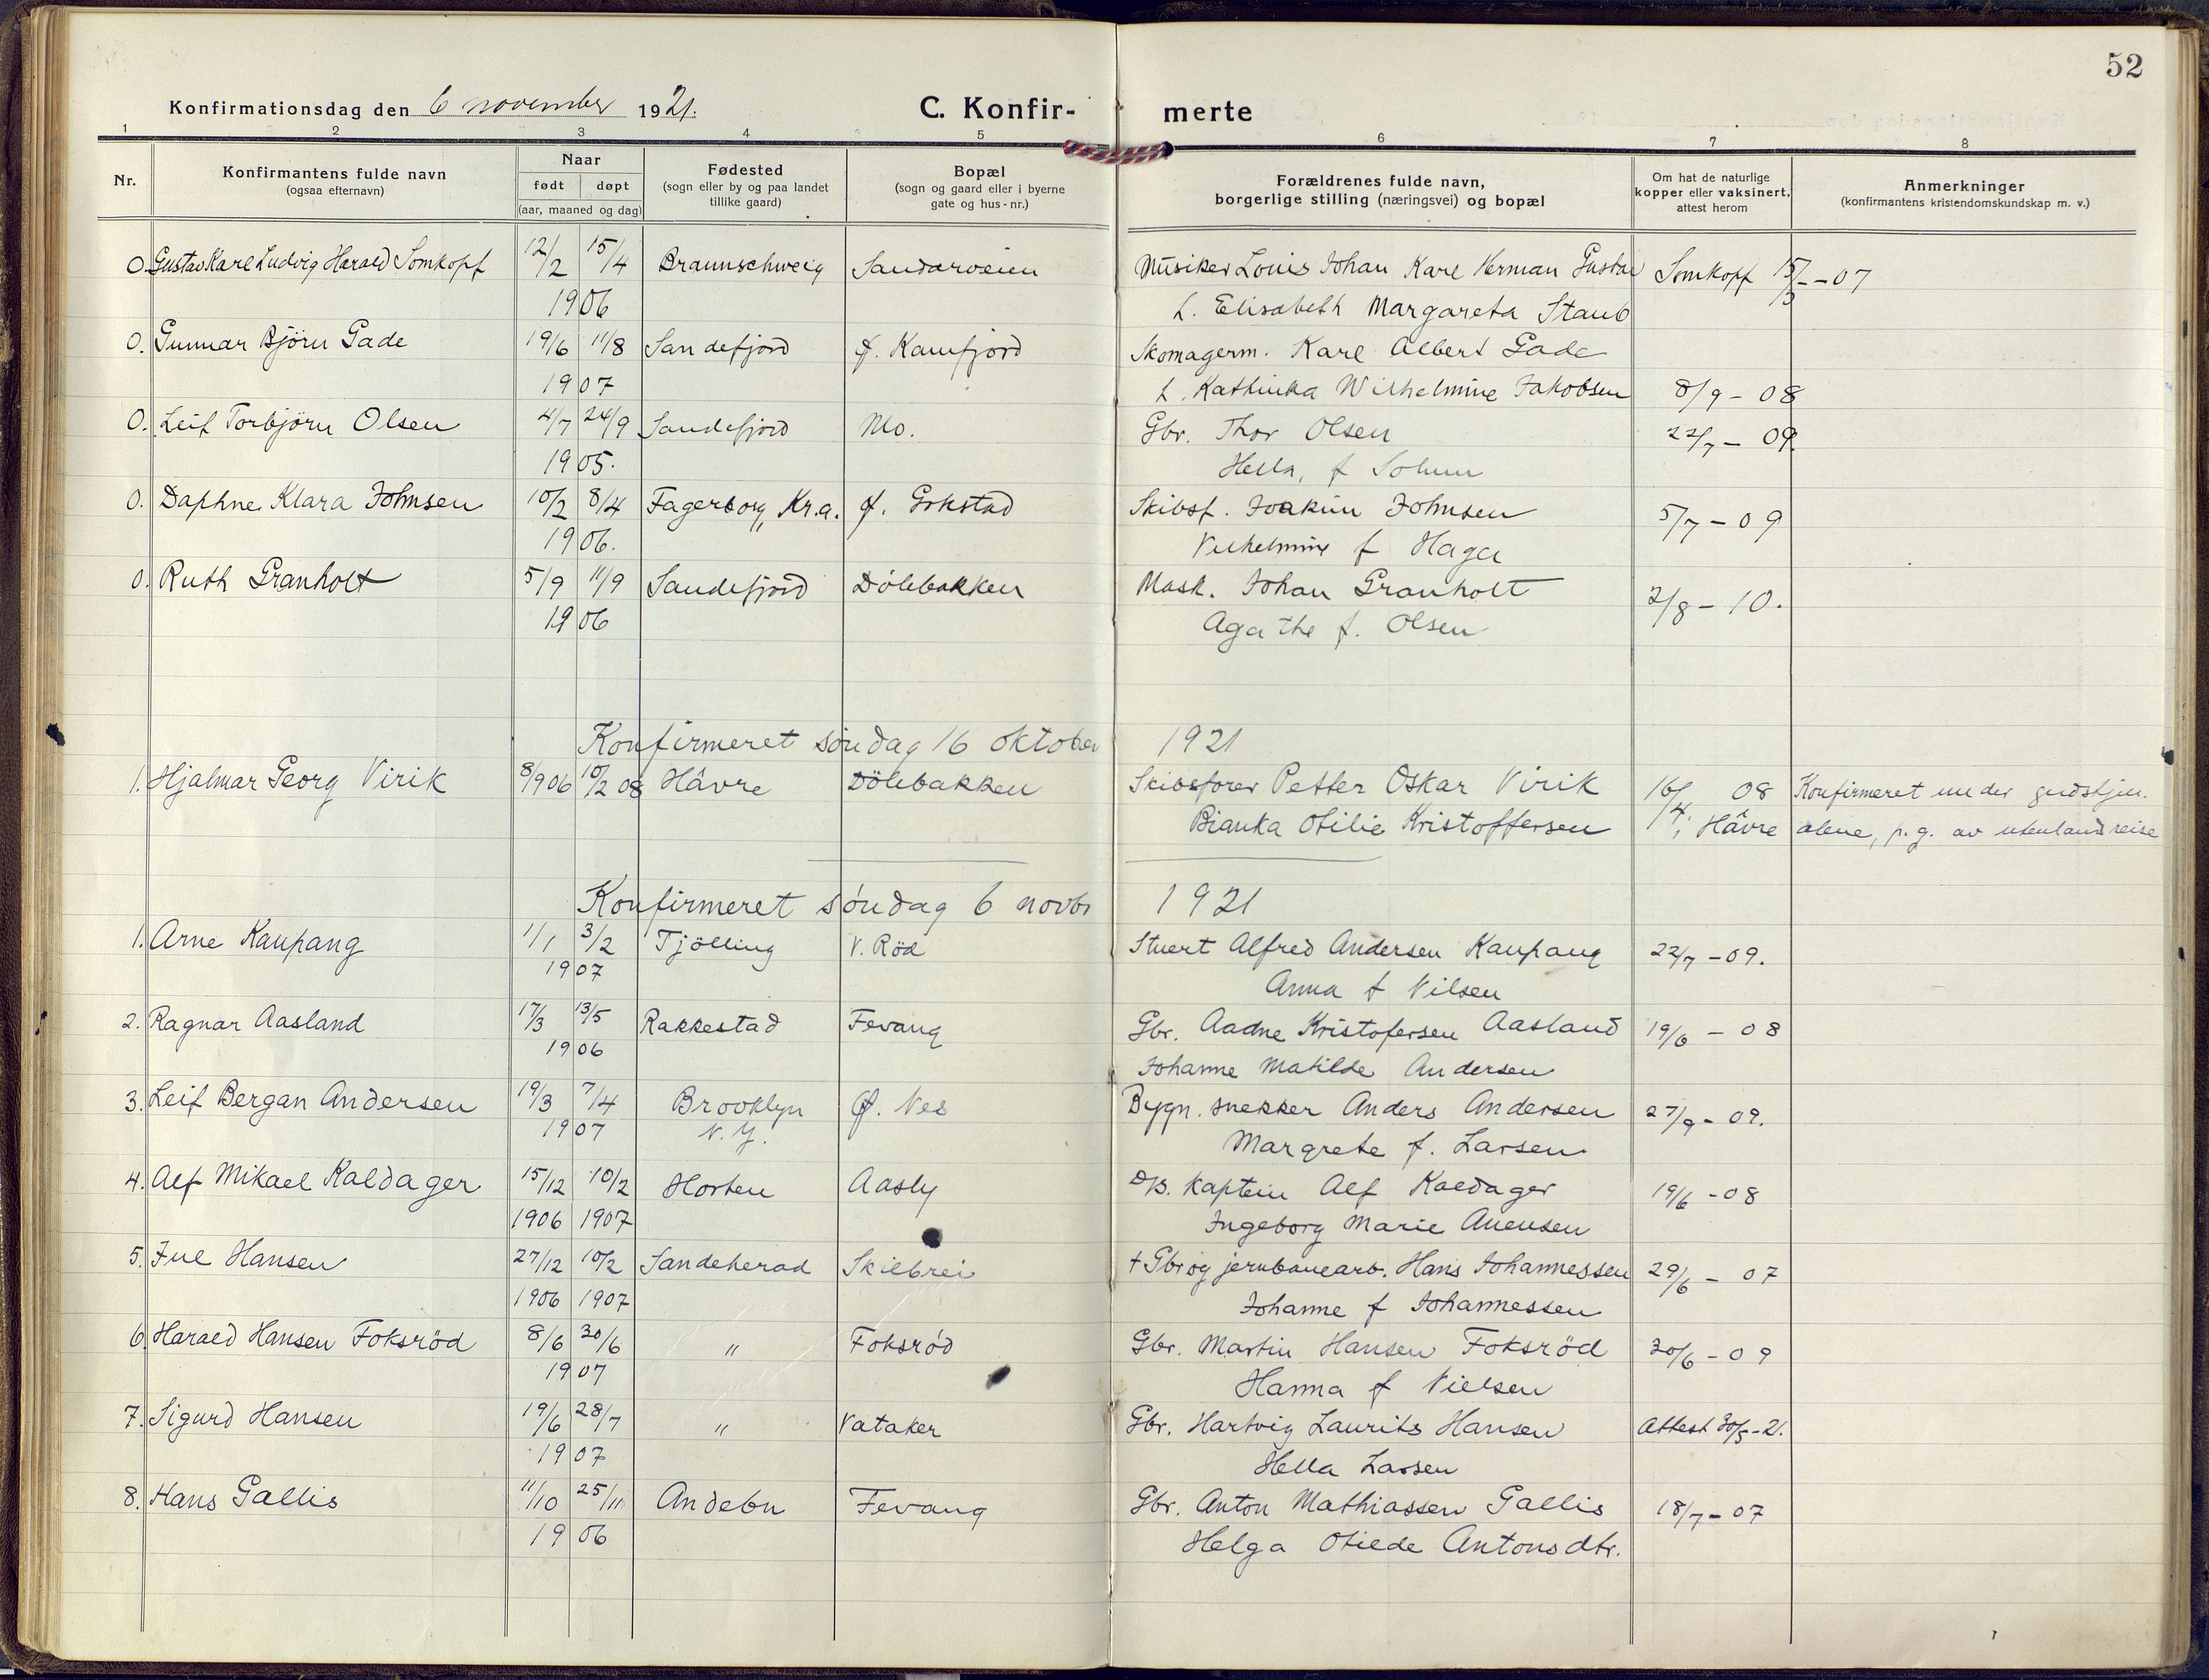 52
Konfirmationsdag den 6 november 1921. C. Konfir- merte
1 2 3 4 5 6 7 8
Nr. Konfirmantens fulde navn (ogsaa efternavn) Naar født døpt (aar, maaned og dag) Fødested (sogn eller by og paa landet tillike gaard) Bopæl (sogn og gaard eller i byerne gate og hus-nr.) Forældrenes fulde navn, borgerlige stilling (næringsvei) og bopæl Om hat de naturlige kopper eller vaksinert, attest herom Anmerkninger (konfirmantens kristendomskundskap m. v.)
0. Gustav Karl Ludvig Harald Somkopf 12/2 15/4 Braunschweig Sandarveien Musiker Louis Johan Karl Herman Gustav Somkopf 15/5 - 07
1906 L. Elisabeth Margareta Staub
0. Gunnar Björn Gade 19/6 11/8 Sandefjord Ø. Kamfjord Skomagerm. Karl Albert Gade
1907 L. Kathinka Wilhelmine Jakobsen 8/9 - 08
0. Leif Torbjörn Olsen 4/7 24/9 Sandefjord Mo. Gbr. Thor Olsen 22/7 - 09.
1905. Hella, f Solum
0. Daphne Klara Johnsen 10/2 8/4 Fagerborg, Kr.a. Ø. Gokstad Skibsf. Joakim Johnsen 5/7 - 09
1906. Vilhelmine f Haga
0. Ruth Granholt 5/9 11/9 Sandefjord Dölebakken Mask. Johan Granholt 2/8 - 10.
1906 Agathe f. Olsen
Konfirmeret søndag 16 oktober 1921
1. Hjalmar Georg Virik 8/9 06 10/2 08 Hâvre Dölebakken Skibsfører Petter Oskar Virik 16/4 08 Konfirmeret under gudstjen.
Bianka Otilie Kristoffersen i Hâvre alene, p. g. av utenlandsreise
Konfirmeret søndag 6 novbr 1921
1. Arne Kaupang 1/1 3/2 Tjölling V. Röd Stuert Alfred Andersen Kaupang 22/7 - 09.
1907 Anna f Nilsen
2. Ragnar Aasland 17/3 13/5 Rakkestad Fevang Gbr. Aadne Kristofersen Aasland 19/6 - 08
1906 Johanne Matilde Andersen
3. Leif Bergan Andersen 19/3 7/4 Brooklyn Ø. Nes Bygn. snekker Anders Andersen 27/9 - 09.
1907 N. Y. Margrete f. Larsen
4. Alf Mikael Kaldager 15/12 10/2 Horten Aasly D/S. kaptein Alf Kaldager 19/6 - 08
1906 1907 Ingeborg Marie Auensen
5. Jul Hansen 27/12 10/2 Sandeherad Skilbrei + Gbr og jernbanearb. Hans Johannessen 29/6 - 07
1906 1907 Johanne f Johannessen
6. Harald Hansen Foksröd 8/6 30/6 " Foksröd Gbr. Martin Hansen Foksröd 30/6 - 09
1907 Hanna f Nielsen
7. Sigurd Hansen 19/6 28/7 " Vataker Gbr. Hartvig Laurits Hansen Attest 30/5 - 21.
1907 Hella Larsen
8. Hans Gallis 11/10 25/11 Andebu Fevang Gbr. Anton Mathiassen Gallis 18/7 - 07
1906 Helga Otilde Antonsdtr.